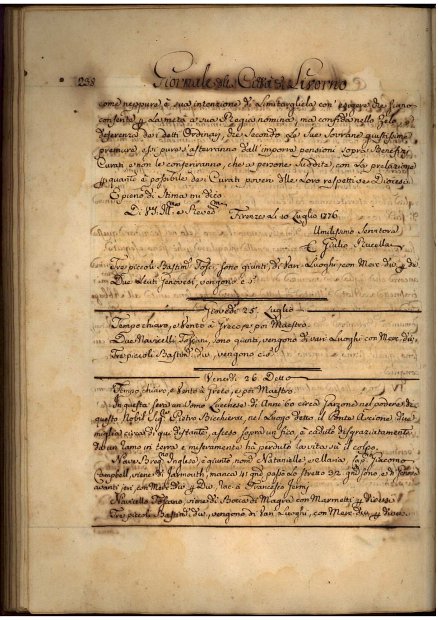 238 Giornale della Città di Livorno
come neppure è sua intenzione di limitargliela con esigere che siano
conferite la metà a sua Regia nomina, ma confida nello Zelo, e
deferenza dei detti Ordinarj, che Secondo le Sue Sovrane giustissime
premure essi pure s'asterranno dall'imporre pensioni sopra Benefizi
Curati e non le conferiranno, che a persone Suddite, con la prelazione
quanto è possibile dei Curati poveri delle loro respettive Diocesi
E pieno di Stima mi dico
Firenze Li 10 Luglio 1776.
Umilissimo Servitore
Giulio Rucellai
Tre piccoli Bastim. Tosc. sono giunti, di Vari Luoghi, con Merc. div.
Due Leuti Genovesi, vengono c. s.
Giovedì 25. Luglio
Tempo chiaro, e Vento a Greco, e poi Maestro
Due Navicelli Toscani, sono giunti, vengono di vari Luoghi con Merc. div.
Tre piccoli Bastim. div. vengono c. s.
Venerdì 26. Detto
Tempo, chiaro, e Vento a Greco, e poi Maestro
In questa sera un Luogo Lucchese di Anni 60 circa Garzone nel podere di
questo Nobil Sig. Pietro Bicchierai, nel Luogo detto il Ponte Arcione due
miglia circa di qui distante, asceso sopra un fico, è caduto disgraziatamente
da un ramo in terra e miseramente ha perduto la vita sul il corpo.
Nave Inglese è giunta non Natanielle e Maria Cap. Giacomo
Campbell, viene di Yarmouth, manca 41 qui passò lo stretto 32
avanti jeri, con Merc. div. a Francesco Jermy
Navicello Toscano, viene di Bocca di Magra con Marmetti
Tre piccoli Bastim. div. vengono di vari Luoghi, con Merc. div.